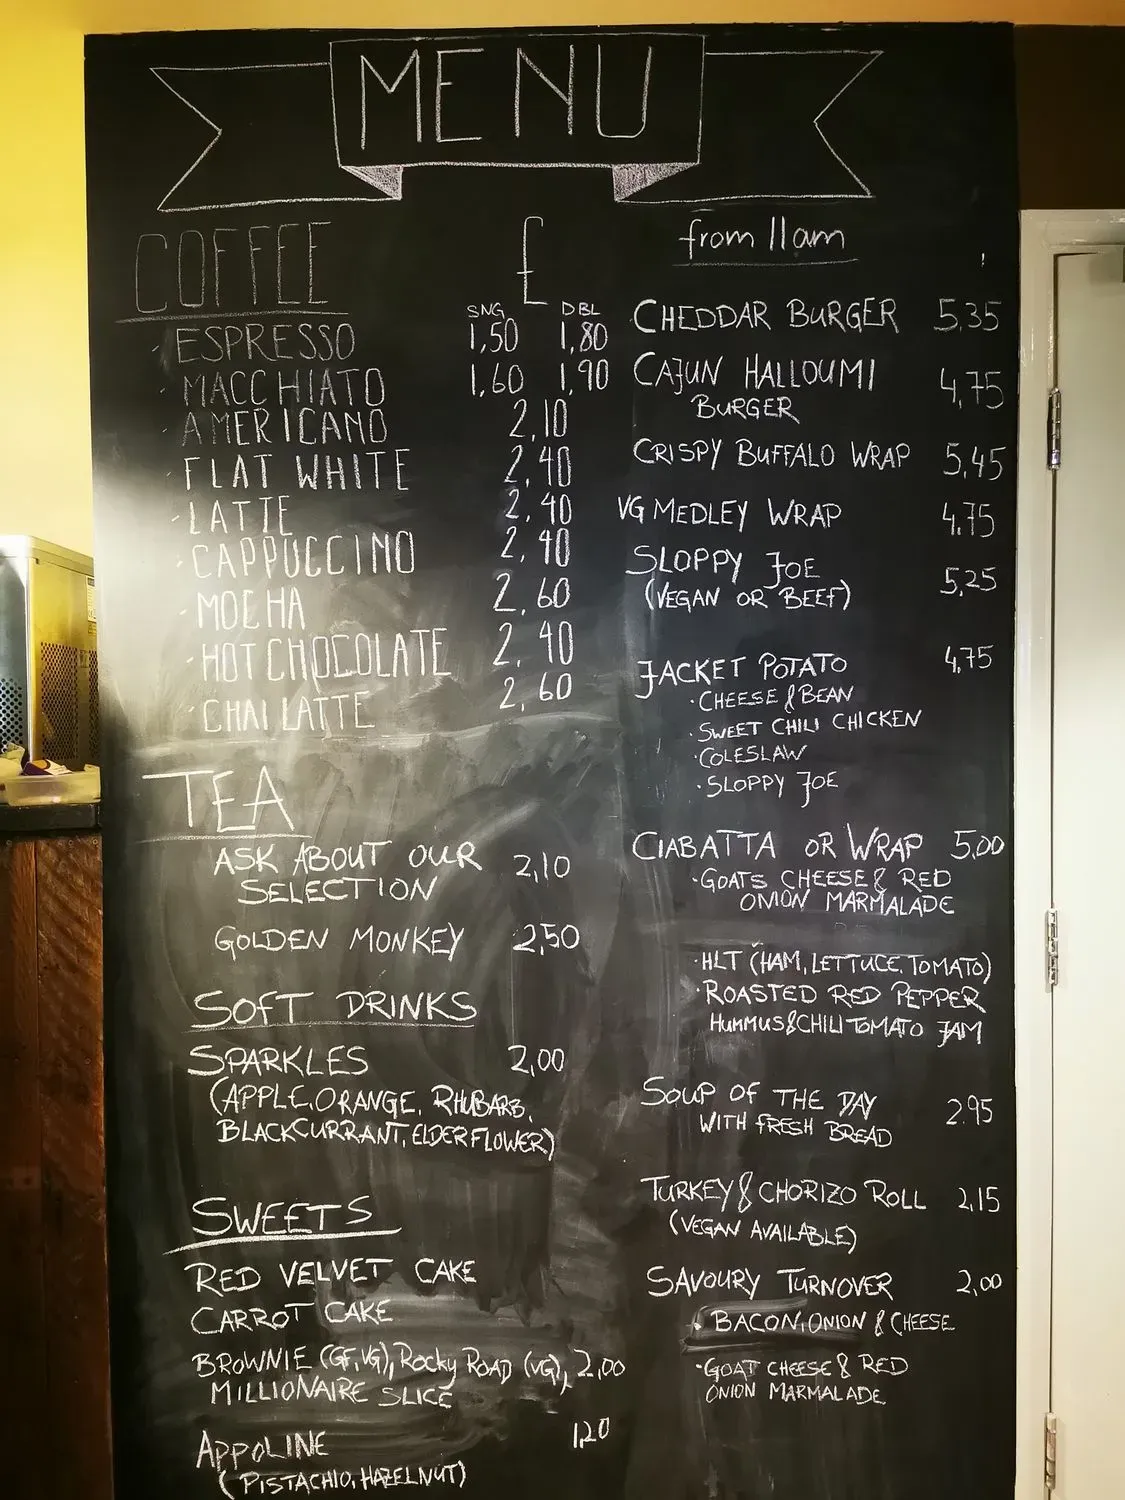 MENU
COFFEE £
SNG DBL
- ESPRESSO 1,50 1,80
- MACCHIATO 1,60 1,90
- AMERICANO 2,10
FLAT WHITE 2,40
- LATTE 2,40
- CAPPUCCINO 2,40
- MOCHA 2,60
- HOT CHOCOLATE 2,40
- CHAI LATTE 2,60
TEA
ASK ABOUT OUR 2,10
SELECTION
GOLDEN MONKEY 2,50
SOFT DRINKS
SPARKLES 2,00
(APPLE, ORANGE, RHUBARB,
BLACKCURRANT, ELDERFLOWER)
SWEETS
RED VELVET CAKE
CARROT CAKE
BROWNIE (GF,VG), ROCKY ROAD (VG), 2,00
MILLIONAIRE SLICE
APPOLINE 1,20
(PISTACHIO, HAZELNUT)
from 11am
CHEDDAR BURGER 5,35
CAJUN HALLOUMI 4,75
BURGER
CRISPY BUFFALO WRAP 5,45
VG MEDLEY WRAP 4,75
SLOPPY JOE 5,25
(VEGAN OR BEEF)
JACKET POTATO 4,75
· CHEESE & BEAN
· SWEET CHILI CHICKEN
· COLESLAW
· SLOPPY JOE
CIABATTA OR WRAP 5,00
· GOATS CHEESE & RED
ONION MARMALADE
· HLT (HAM, LETTUCE, TOMATO)
· ROASTED RED PEPPER
HUMMUS & CHILI TOMATO JAM
SOUP OF THE DAY 2.95
WITH FRESH BREAD
TURKEY & CHORIZO ROLL 2,15
(VEGAN AVAILABLE)
SAVOURY TURNOVER 2,00
· BACON, ONION & CHEESE
· GOAT CHEESE & RED
ONION MARMALADE